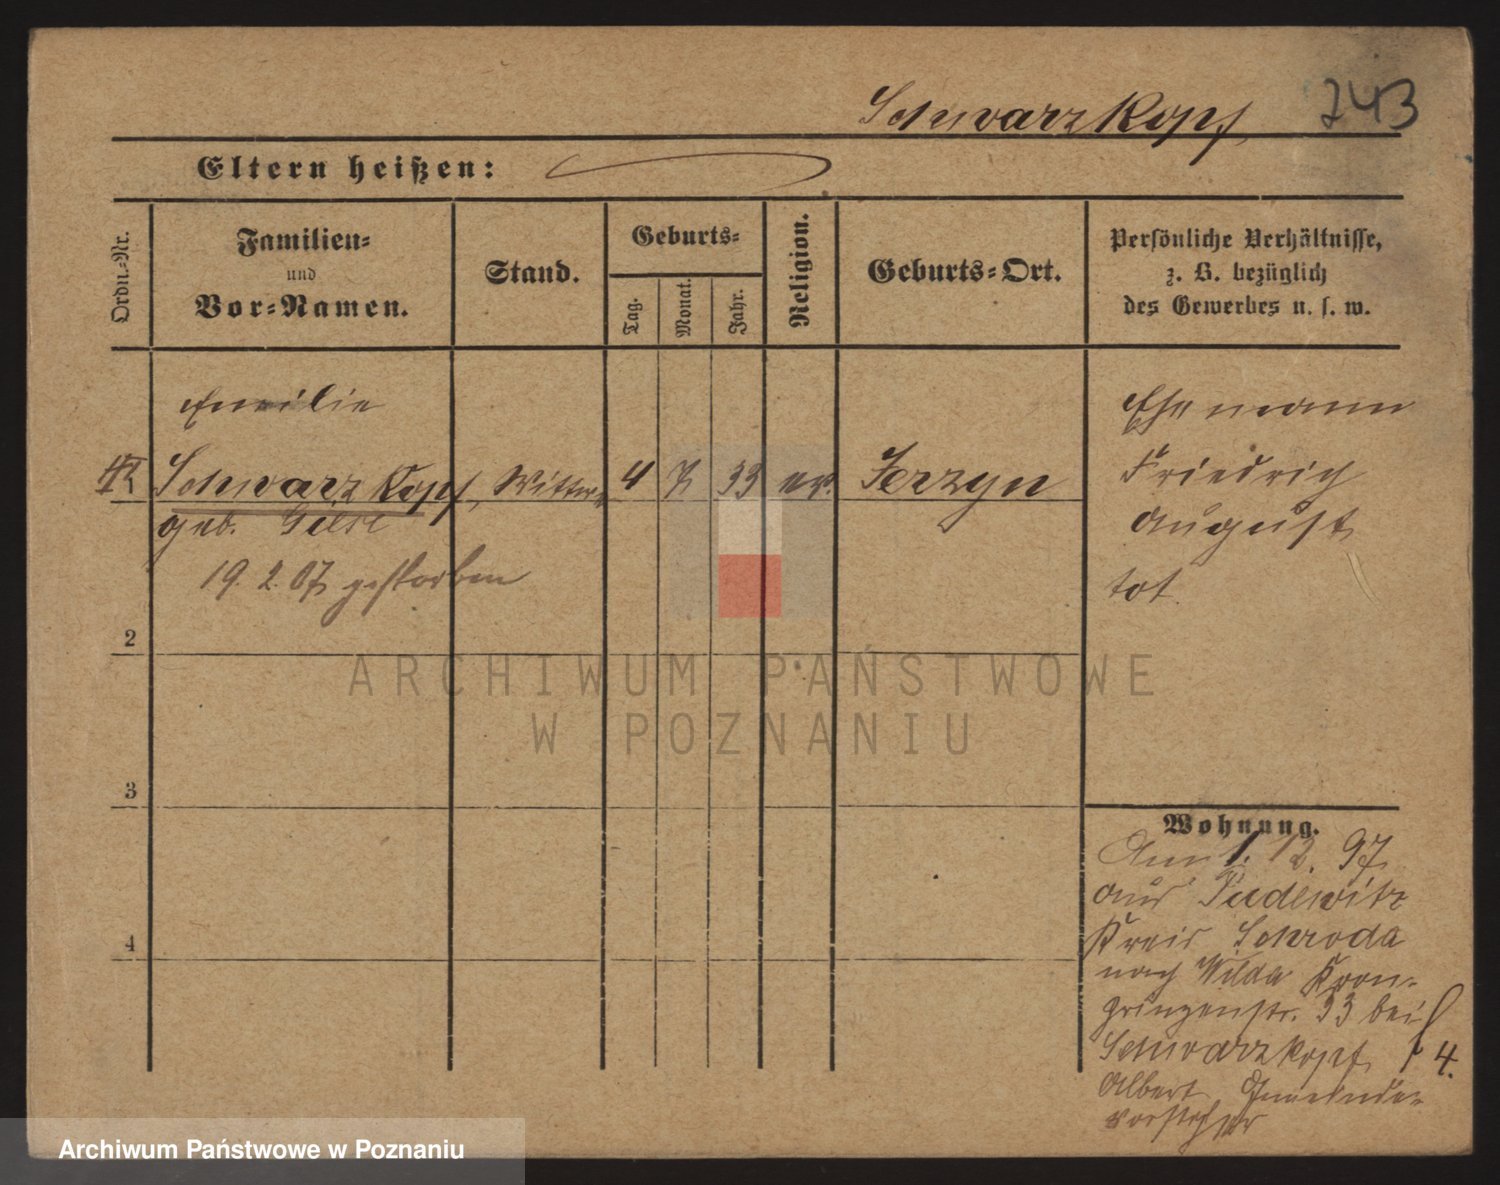 Schwarzkopf 243
Eltern heißen:
Ordn.-Nr.
Familien-
und
Vor-Namen.
Stand.
Geburts-
Tag.
Monat.
Jahr.
Religion.
Geburts-Ort.
Persönliche Verhältnisse,
z. B. bezüglich
des Gewerbes u. s. w.
Emilie
Schwarzkopf, Wittwe 4 7 33 ev. Jerzyn
geb.
19. 2. 07 gestorben
Ehemann
Friedrich
August
tot
2
3
4
ARCHIWUM PAŃSTWOWE
W POZNANIU
Wohnung.
Am 1. 12. 97
aus Pudewitz
Kreis Schroda
nach Wilda Kron-
prinzenstr. 33 bei
Schwarzkopf 4.
Albert Gemeinde-
vorsteher
Archiwum Państwowe w Poznaniu